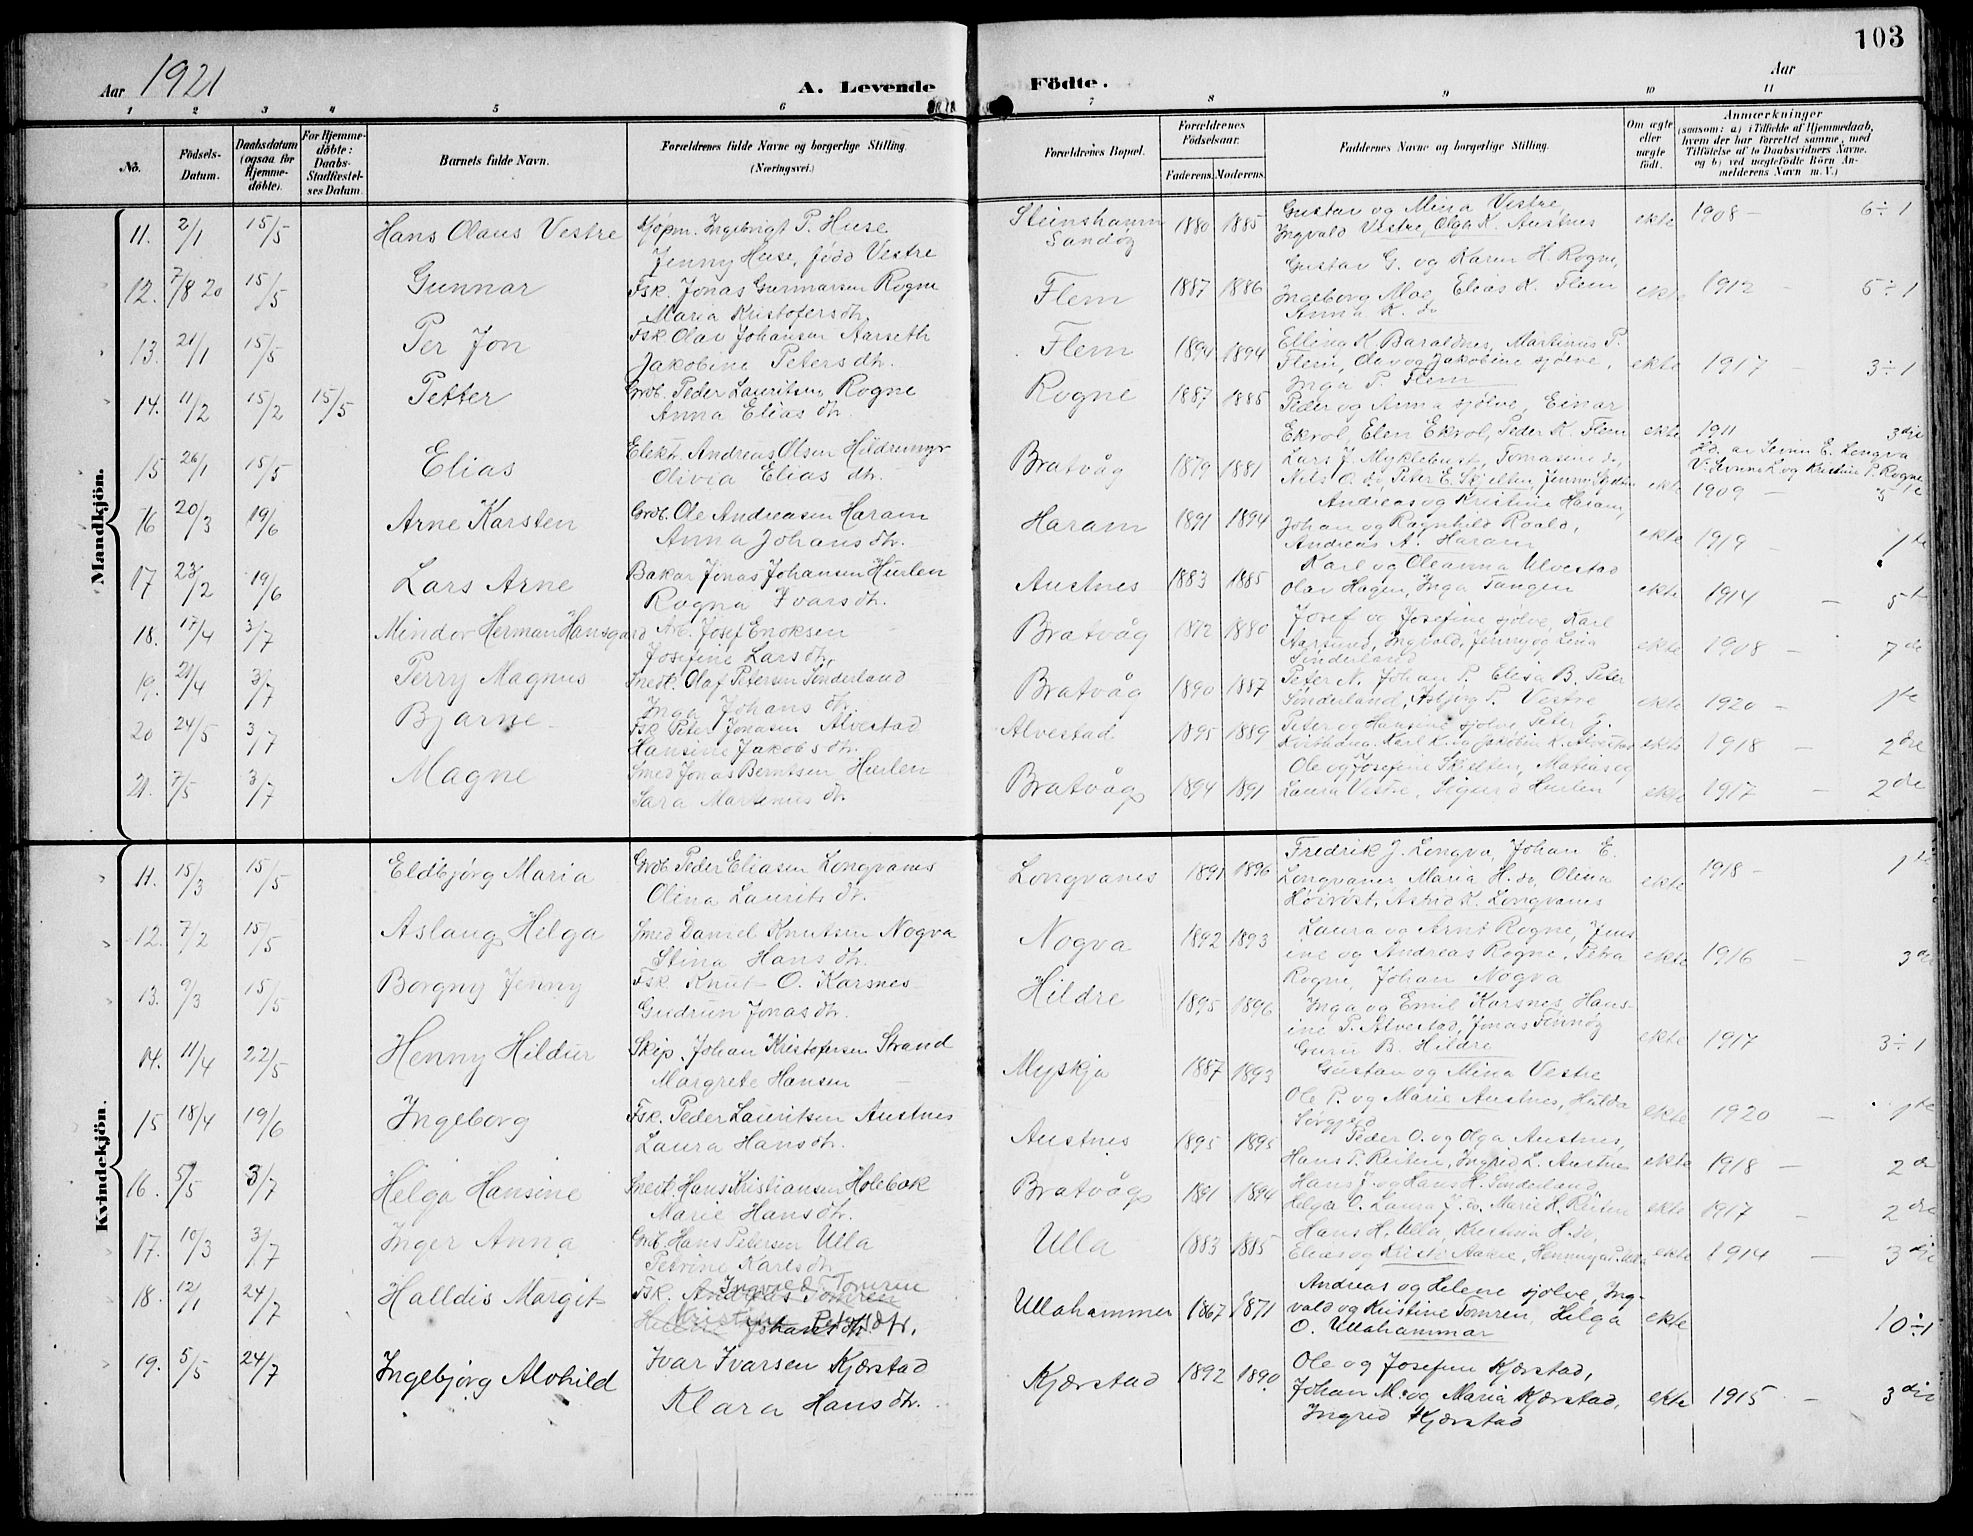 103
Aar 1921
A. Levende
Födte.
Aar
1 2 3 4 5 6 7 8 9 10 11
No.
Födsels-Datum.
Daabsdatum (ogsaa for Hjemmedöbte).
For Hjemmedöbte: Daabs-Stadfæstelses Datum.
Barnets fulde Navn.
Forældrenes fulde Navne og borgerlige Stilling. (Næringsvei.)
Forældrenes Bopæl.
Forældrenes Födselsaar.
Faderens. Moderens.
Faddernes Navne og borgerlige Stilling.
Om ægte eller uægte födt.
Anmærkninger
(saasom: a) i Tilfælde af Hjemmedaab, hvem der har forrettet samme, med Tilföielse af to Daabsvidners Navne, og b) ved uegtefödte Börn Anmelderens Navn m. V.)
Mandkjön.
11. 2/1 15/5 Hans Olaus Vestre Kjøpm. Ingebrigt P. Huse
Jenny Huse, född Vestre
Steinshamn Sandøy 1880 1885 Gustav og Mina Vestre, Ingvald Vestre, Olga K. Austnes ekte 1908 - 6÷1
12. 7/8 20 15/5 Gunnar Fsk. Jonas Gunnarsen Rogne
Maria Kristofersdtr.
Flem 1887 1886 Gustav G. og Karen H. Rogne, Ingeborg Moe, Elias K. Flem
Anna K. do ekte 1912 - 5÷1
13. 21/1 15/5 Per Jon Fsk Olav Johansen Aarseth
Jakobine Petersdtr.
Flem 1894 1894 Elling K. Baraldnes, Martinus P. Flem, Olav og Jakobine sjølve, Inga P. Flem ekte 1917 - 3÷1
14. 11/2 15/2 15/5 Petter Grdb. Peder Lauritsen Rogne
Anna Eliasdtr.
Rogne 1887 1885 Peder og Anna sjølve, Einar Ekrol, Elen Ekrol, Peder K. Flem ekte 1911 3die
Hd. av Sevrin E. Longva
15 26/1 15/5 Elias Elekt. Andreas Olsen Hildremyr
Olivia Eliasdtr.
Bratvåg 1879 1881 Lars J. Myklebust, Tomasine do, Nils O. do, Peter E. Skjelten, ekte 1909 -
16 20/3 19/6 Arne Karsten Grdb. Ole Andreasen Haram
Anna Johansdtr.
Haram 1891 1894 Andreas og Kristine Haram, Johan og Ragnhild Roald, Andreas A. Haram ekte 1919 - 1te
17 23/2 19/6 Lars Arne Bakar Jonas Johansen Hurlen
Ragna Ivarsdtr.
Austnes 1883 1885 Karl og Oleanna Ulvestad
Olav Hagen, Inga Tangen ekte 1914 - 5te
18. 17/4 3/7 Mindor Herman Hansgard Arb. Josef Enoksen
Josefine Larsdtr.
Bratvåg 1872 1880 Josef og Josefine sjølve, Karl Aarsund, Ingvald, Jenny og Lina Sønderland ekte 1908 - 7de
19. 21/4 3/7 Perry Magnus Snedk. Olaf Petersen Sønderland
Inga Johansdtr.
Bratvåg 1890 1887 Peter N. Johan P. Elisa B. Peter Sønderland, Asbjørg P. Vestre ekte 1920 - 1te
20 24/5 3/7 Bjarne Fsk Peter Jonasen Alvestad
Hansine Jakobsdtr.
Alvestad 1895 1889 Peter og Hansine sjølve Peter J. Karl K. og Jakobin K. Alvestad ekte 1918 - 2dre
21. 7/5 3/7 Magne Smed Jonas Berntsen Hurlen
Sara Martinusdtr.
Bratvåg 1894 1891 Ole og Josefine Skjelten, Matias og Laura Vestre, Sigurd Hurlen ekte 1917 - 2dre
Kvindekjön.
11. 15/3 15/5 Eldbjørg Maria Grdb Peder Eliasen Longvanes
Olina Lauritsdtr.
Longvanes 1891 1896 Fredrik J. Longva, Johan E. Longvanes Maria H. do, Olina Høirøst, Astrid K. Longvanes ekte 1918 - 1te
12. 7/2 15/5 Aslaug Helga Smed Daniel Knutsen Nogva
Stina Hansdtr.
Nogva 1892 1893 Laura og Arnt Rogne, Jensine og Andreas Rogne, Petra Rogne, Johan Nogva ekte 1916 - 3die
13. 9/3 15/5 Borgny Jenny Fsk. Knut O. Karsnes
Gudrun Jonasdtr.
Hildre 1895 1896 Inga og Emil Karsnes, Hansine P. Alvestad, Jonas Fennøy
Guru B. Hildre ekte 1917 3÷1
14. 11/4 22/5 Henny Hildur Skip. Johan Kristofersen Strand
Margrete Hansen
Myskja 1887 1893 Gustav og Mina Vestre
Ole P. og Marie Austnes, Hilda Sørgjerd ekte 1920 - 1te
15 18/4 19/6 Ingeborg Fsk. Peder Lauritsen Austnes
Laura Hansdtr.
Austnes 1895 1895 Peder O. og Olga Austnes, Hans P. Reiten, Ingrid L. Austnes ekte 1918 - 2dre
16. 5/5 3/7 Helga Hansine Snedk. Hans Kristiansen Holebak
Marie Hansdtr.
Bratvåg 1891 1894 Hans J. og Hans H. Sønderland
Helga O. Laura J. do, Marie K. Reiten ekte 1917 - 2dre
17. 10/3 3/7 Inger Anna Grdb. Hans Petersen Ulla
Petrine Karlsdtr.
Ulla 1883 1885 Hans H. Ulla, Kristina H. do, Elias og Kristi Aakre, Henny ekte 1914 - 3die
18. 12/1 24/7 Halldis Margit Fsk. Andreas Tomren Ingvald Tomren
Helene Johansdtr. Kristine Petersdtr.
Ullahammer 1867 1871 Andreas og Helene sjølve, Ingvald og Kristine Tomren, Helga O. Ullahammar ekte 10÷1
19. 5/5 24/7 Ingebjørg Alvhild Ivar Ivarsen Kjærstad
Klara Hansdtr.
Kjærstad 1892 1890 Ole og Josefine Kjærstad, Johan M. og Maria Kjærstad, Ingrid Kjærstad ekte 1915 - 3die